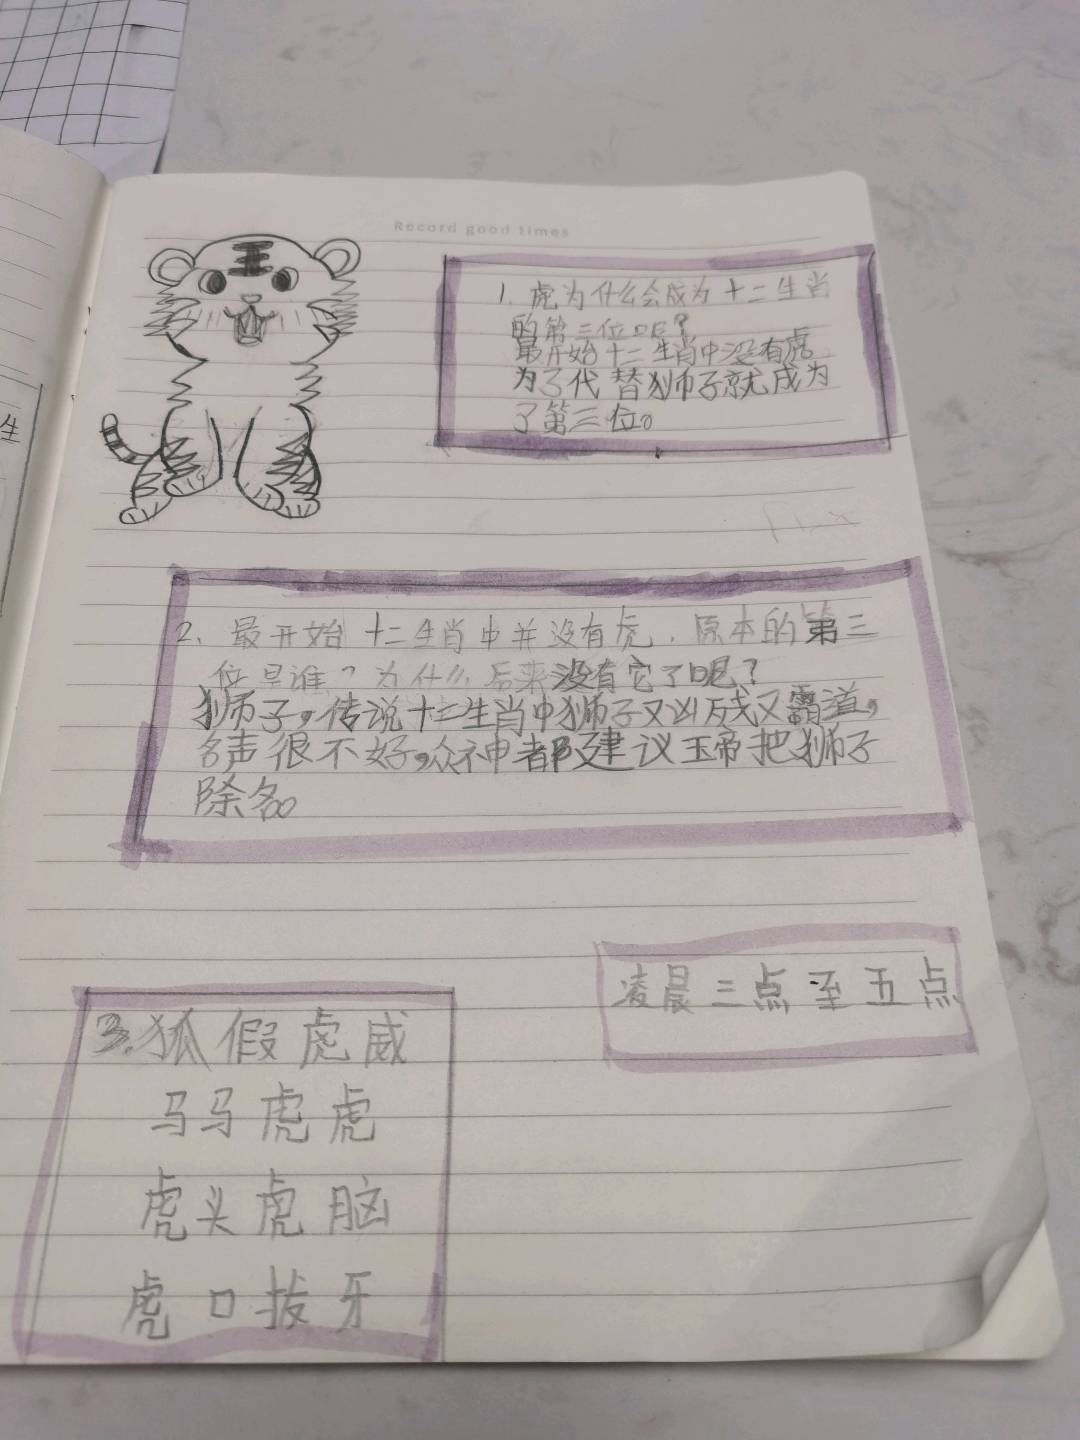 Record good times
王
1. 虎为什么会成为十二生肖
的第三位呢？
最开始十二生肖中没有虎
为了代替狮子就成为
了第三位。
生
2. 最开始十二生肖中并没有虎，原本的第三
位是谁？为什么后来没有它了呢？
狮子，传说十二生肖中狮子又凶残又霸道，
名声很不好，众神都建议玉帝把狮子
除名。
凌晨三点至五点
3. 狐假虎威
马马虎虎
虎头虎脑
虎口拔牙